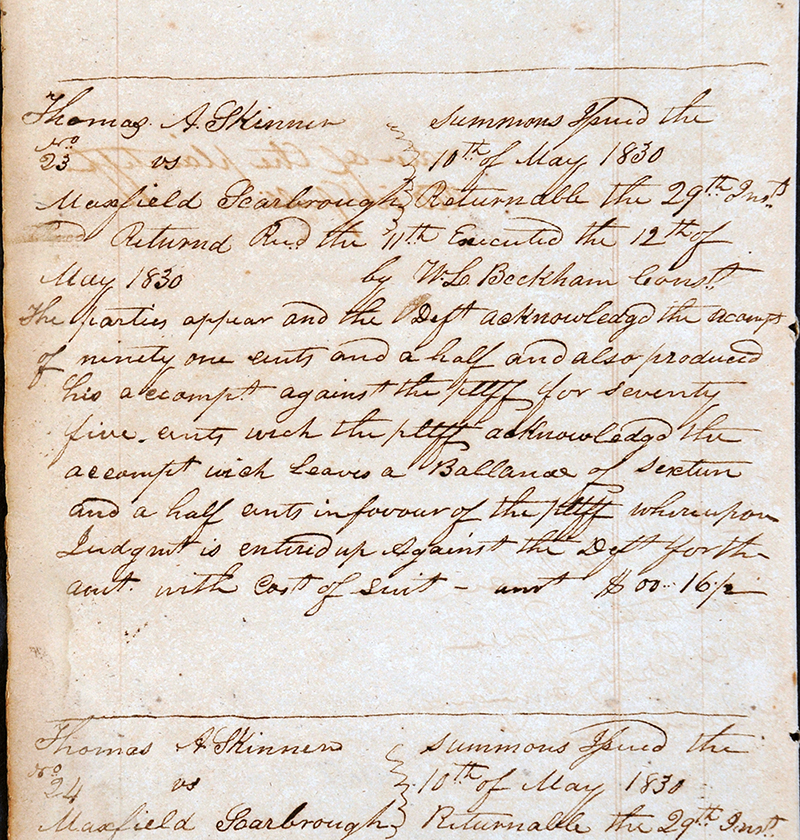 Thomas A. Skinner summons Isued the
No
23 vs 10th of May 1830
Maxfield Scarbrough Returnable the 29th Inst
Returnd Recd the 11th Executed the 12th of
May 1830 by W. L. Beckham Const.
The parties appear and the Deft acknowledgd the accompt
of ninety one cents and a half and also produced
his accompt against the pltff for seventy
five cents wich the pltff acknowledgd the
accompt wich leaves a Ballance of sixteen
and a half cents in favour of the pltff whereupon
Judgmt is entired up against the Deft for the
amt. with Cost of suit – amt $00..16½
Thomas A. Skinner summons Isued the
No
24 vs 10th of May 1830
Maxfield Scarbrough Returnable the 29th Inst